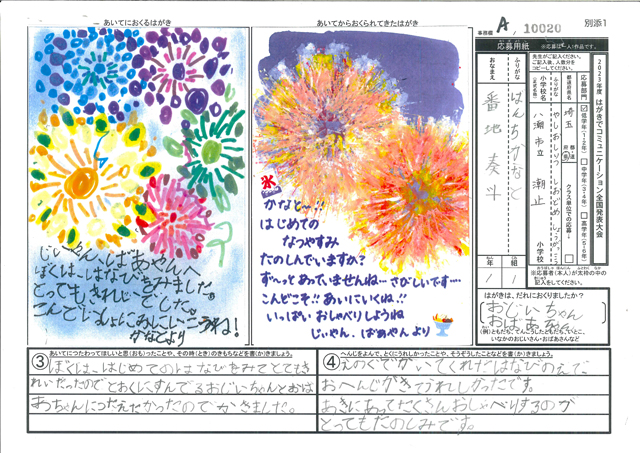 事務欄 A, 10020 別添1
あいてにおくるはがき
あいてからおくられてきたはがき
じいやんへ ばあやんへ
ぼくは、はなびをみました。
とってもきれいでした。
こんどいっしょにみにいこうね！
かなとより
氷
かなと〜!!
はじめての
なつやすみ
たのしんでいますか？
ず〜っとあっていませんね…さびしいです…
こんどこそ!!あいにいくね!!
いっぱいおしゃべりしようね
じいやん、ばあやんより
2023年度 はがきでコミュニケーション全国発表大会
応募用紙
先生がご記入ください。
ご記入後、人数分を
コピーしてください。
応募部門
低学年(1・2年)
中学年(3・4年)
高学年(5・6年)
都道府県名
埼玉
クラス単位での応募
ふりがな
やしおしりつ しおどめ
小学校名
八潮市立 潮止 小学校
ふりがな
はんちかなと
おなまえ
番地奏斗
1年
1組
※応募者(本人)が太枠の中の
記入をしてください。
はがきは、だれにおくりましたか？
おじいちゃん
おばあちゃん
(例)ともだち、てんこうしたともだち、いとこ、
いなかのおじいさん・おばあさんなど
③ あいてにつたわってほしいと思(おも)ったことや、その時(とき)のきもちなどを書(か)きましょう。
ぼくは、はじめてのはなびをみてとても
きれいだったのでとおくにすんでるおじいちゃんとおば
あちゃんにつたえたかったのでかきました。
④ へんじをよんで、とくにうれしかったことや、そうぞうしたことなどを書(か)きましょう。
えのぐでかいてくれたはなびのえで
おへんじがきてうれしかったです。
あきにあってたくさんおしゃべりするのが
とってもたのしみです。